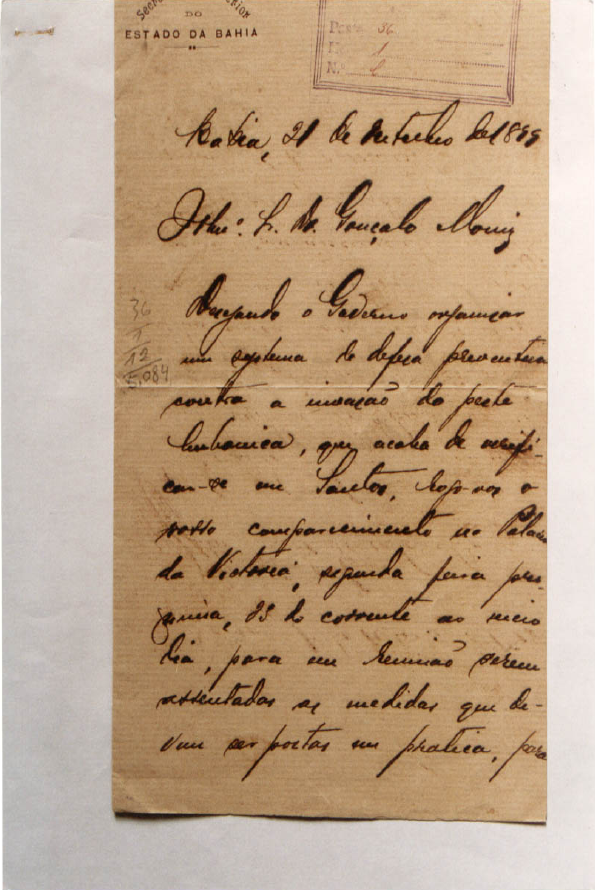 DO
ESTADO DA BAHIA
36
1
N.º
Bahia, 21 de Outubro de 1899
Illmo. Sr. Dr. Gonçalo Moniz
36
1
12
5.084
Desejando o Governo organizar
um systema de defeza preventiva
contra a invasão da peste
bubonica, que acaba de verifi-
car-se em Santos, rogo-vos o
vosso comparecimento no Palacio
da Victoria, segunda feira pro-
xima, 23 do corrente ao meio
dia, para em reunião serem
assentadas as medidas que de-
vem ser postas em pratica, para